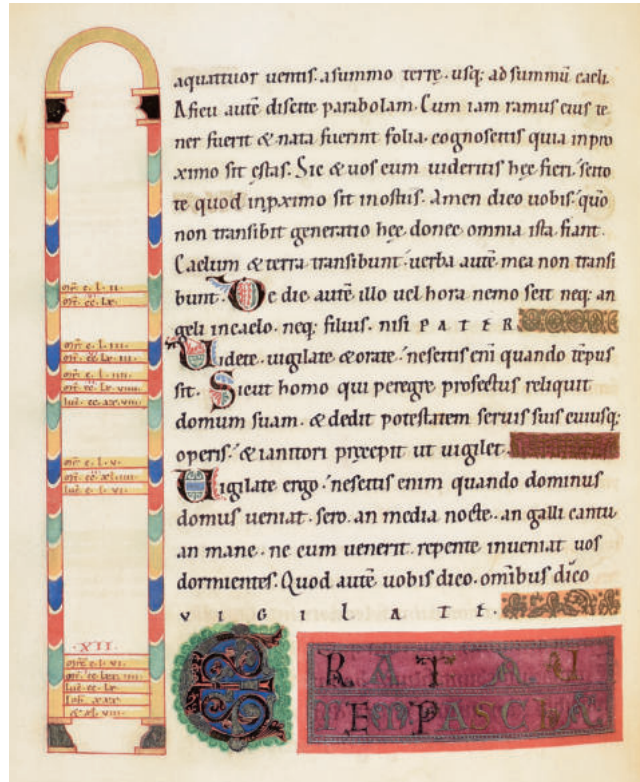 aquattuor uentis. asummo terrę. usq; ad summū caeli.
Aficu autē discite parabolam. Cum iam ramus eius te
ner fuerit & nata fuerint folia. cognoscitis quia inpro
ximo sit ęstas. Sic & uos cum uideritis hęc fieri. scito
te quod inpximo sit inostiis. Amen dico uobis. quō
non transibit generatio hęc donec omnia ista fiant.
Caelum & terra transibunt. uerba autē mea non transi
bunt. De die autē illo uel hora nemo scit neq; an
geli incaelo. neq; filius. nisi PATER
Uidete. uigilate & orate. nescitis eni quando tēpus
sit. Sicut homo qui peregre profectus reliquit
domum suam. & dedit potestatem seruis suis cuiusq;
operis. & ianitori pręcepit ut uigilet.
Uigilate ergo. nescitis enim quando dominus
domus ueniat. sero. an media nocte. an galli cantu
an mane. ne cum uenerit repente inueniat uos
dormientes. Quod autē uobis dico. omībus dico
UIGILATE.
XII
ERAT AU
TEM PASCHA